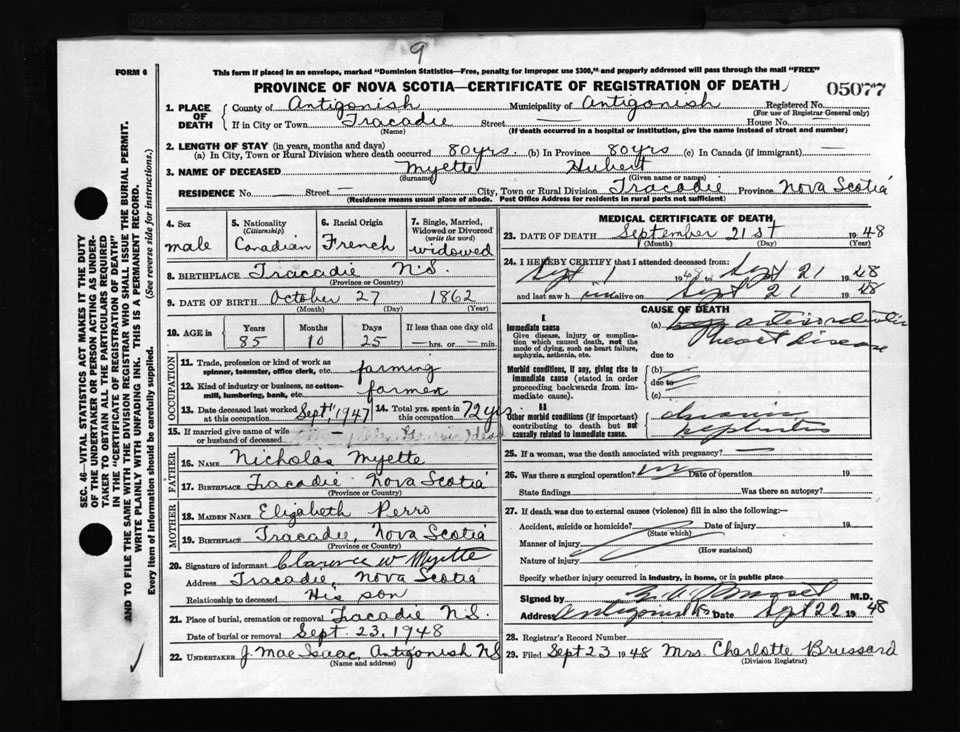 9
FORM 6
This form if placed in an envelope, marked "Dominion Statistics—Free, penalty for improper use $300," and properly addressed will pass through the mail "FREE"
PROVINCE OF NOVA SCOTIA—CERTIFICATE OF REGISTRATION OF DEATH
05077
1. PLACE OF DEATH { County of Antigonish Municipality of Antigonish Registered No.
(For use of Registrar General only)
If in City or Town Tracadie Street — House No.
(Name) (If death occurred in a hospital or institution, give the name instead of street and number)
2. LENGTH OF STAY (in years, months and days)
(a) In City, Town or Rural Division where death occurred 80 yrs. (b) In Province 80 yrs (c) In Canada (if immigrant) —
3. NAME OF DECEASED Myette Hubert
(Surname) (Given name or names)
RESIDENCE No. Street — City, Town or Rural Division Tracadie Province Nova Scotia
(Residence means usual place of abode. Post Office Address for residents in rural parts not sufficient)
4. Sex male
5. Nationality (Citizenship) Canadian
6. Racial Origin French
7. Single, Married, Widowed or Divorced (write the word) widowed
8. BIRTHPLACE Tracadie N.S.
(Province or Country)
9. DATE OF BIRTH October 27 1862
(Month) (Day) (Year)
10. AGE in Years Months Days If less than one day old
85 10 25 — hrs. or — min.
OCCUPATION
11. Trade, profession or kind of work as spinner, teamster, office clerk, etc. farming
12. Kind of industry or business, as cotton-mill, lumbering, bank, etc. farmer
13. Date deceased last worked at this occupation Sept 1947
14. Total yrs. spent in this occupation 72 yrs
15. If married give name of wife or husband of deceased
FATHER
16. NAME Nicholas Myette
17. BIRTHPLACE Tracadie Nova Scotia
(Province or Country)
MOTHER
18. MAIDEN NAME Elizabeth Perro
19. BIRTHPLACE Tracadie, Nova Scotia
(Province or Country)
20. Signature of informant Clarence W Myette
Address Tracadie, Nova Scotia
Relationship to deceased His son
21. Place of burial, cremation or removal Tracadie N.S.
Date of burial or removal Sept. 23, 1948
22. UNDERTAKER J. MacIsaac, Antigonish N.S
(Name and address)
MEDICAL CERTIFICATE OF DEATH
23. DATE OF DEATH September 21st 1948
(Month) (Day) (Year)
24. I HEREBY CERTIFY that I attended deceased from:
Sept 1 1948 to Sept 21 1948
and last saw h im alive on Sept 21 1948
CAUSE OF DEATH
I
Immediate cause
Give disease, injury or complication which caused death, not the mode of dying, such as heart failure, asphyxia, asthenia, etc.
(a) heart Disease
due to
Morbid conditions, if any, giving rise to immediate cause (stated in order proceeding backwards from immediate cause).
(b)
due to
(c)
II
Other morbid conditions (if important) contributing to death but not causally related to immediate cause.
nephritis
25. If a woman, was the death associated with pregnancy? —
26. Was there a surgical operation? no Date of operation 19
State findings Was there an autopsy?
27. If death was due to external causes (violence) fill in also the following:—
Accident, suicide or homicide? Date of injury 19
(State which)
Manner of injury
(How sustained)
Nature of injury
Specify whether injury occurred in industry, in home, or in public place
Signed by M.D.
Address Antigonish N.S Date Sept 22 1948
28. Registrar's Record Number
29. Filed Sept 23 1948 Mrs. Charlotte Brussard
(Division Registrar)
SEC. 46—VITAL STATISTICS ACT MAKES IT THE DUTY
OF THE UNDERTAKER OR PERSON ACTING AS UNDER-
TAKER TO OBTAIN ALL THE PARTICULARS REQUIRED
IN THE "CERTIFICATE OF REGISTRATION OF DEATH"
AND TO FILE THE SAME WITH THE DIVISION REGISTRAR WHO SHALL ISSUE THE BURIAL PERMIT.
WRITE PLAINLY WITH UNFADING INK. THIS IS A PERMANENT RECORD.
Every item of Information should be carefully supplied. (See reverse side for instructions.)